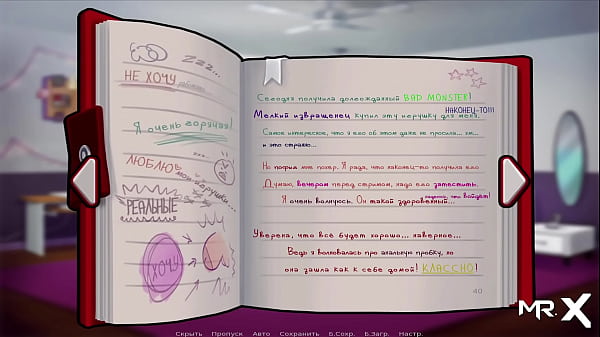 Zzz...
НЕ ХОЧУ работать...
Я очень горячая!
ЛЮБЛЮ мои игрушки...
РЕАЛЬНЫЕ
ХОЧУ
Сегодня получила долгожданный BAD MONSTER!
НАКОНЕЦ-ТО!!!
Мелкий извращенец купил эту игрушку для меня.
Самое интересное, что я его об этом даже не просила... хм...
и это странно...
Но похрен мне похер. Я рада, что наконец-то получила его
Думаю, вечером перед стримом, надо его затестить.
надеюсь, что войдет!
Я очень волнуюсь. Он такой здоровенный...
Уверена, что всё будет хорошо... наверное...
Ведь я волновалась про анальную пробку, но
она зашла как к себе домой! КЛАССНО!
40
Скрыть Пропуск Авто Сохранить Б.Сохр. Б.Загр. Настр.
MR.X